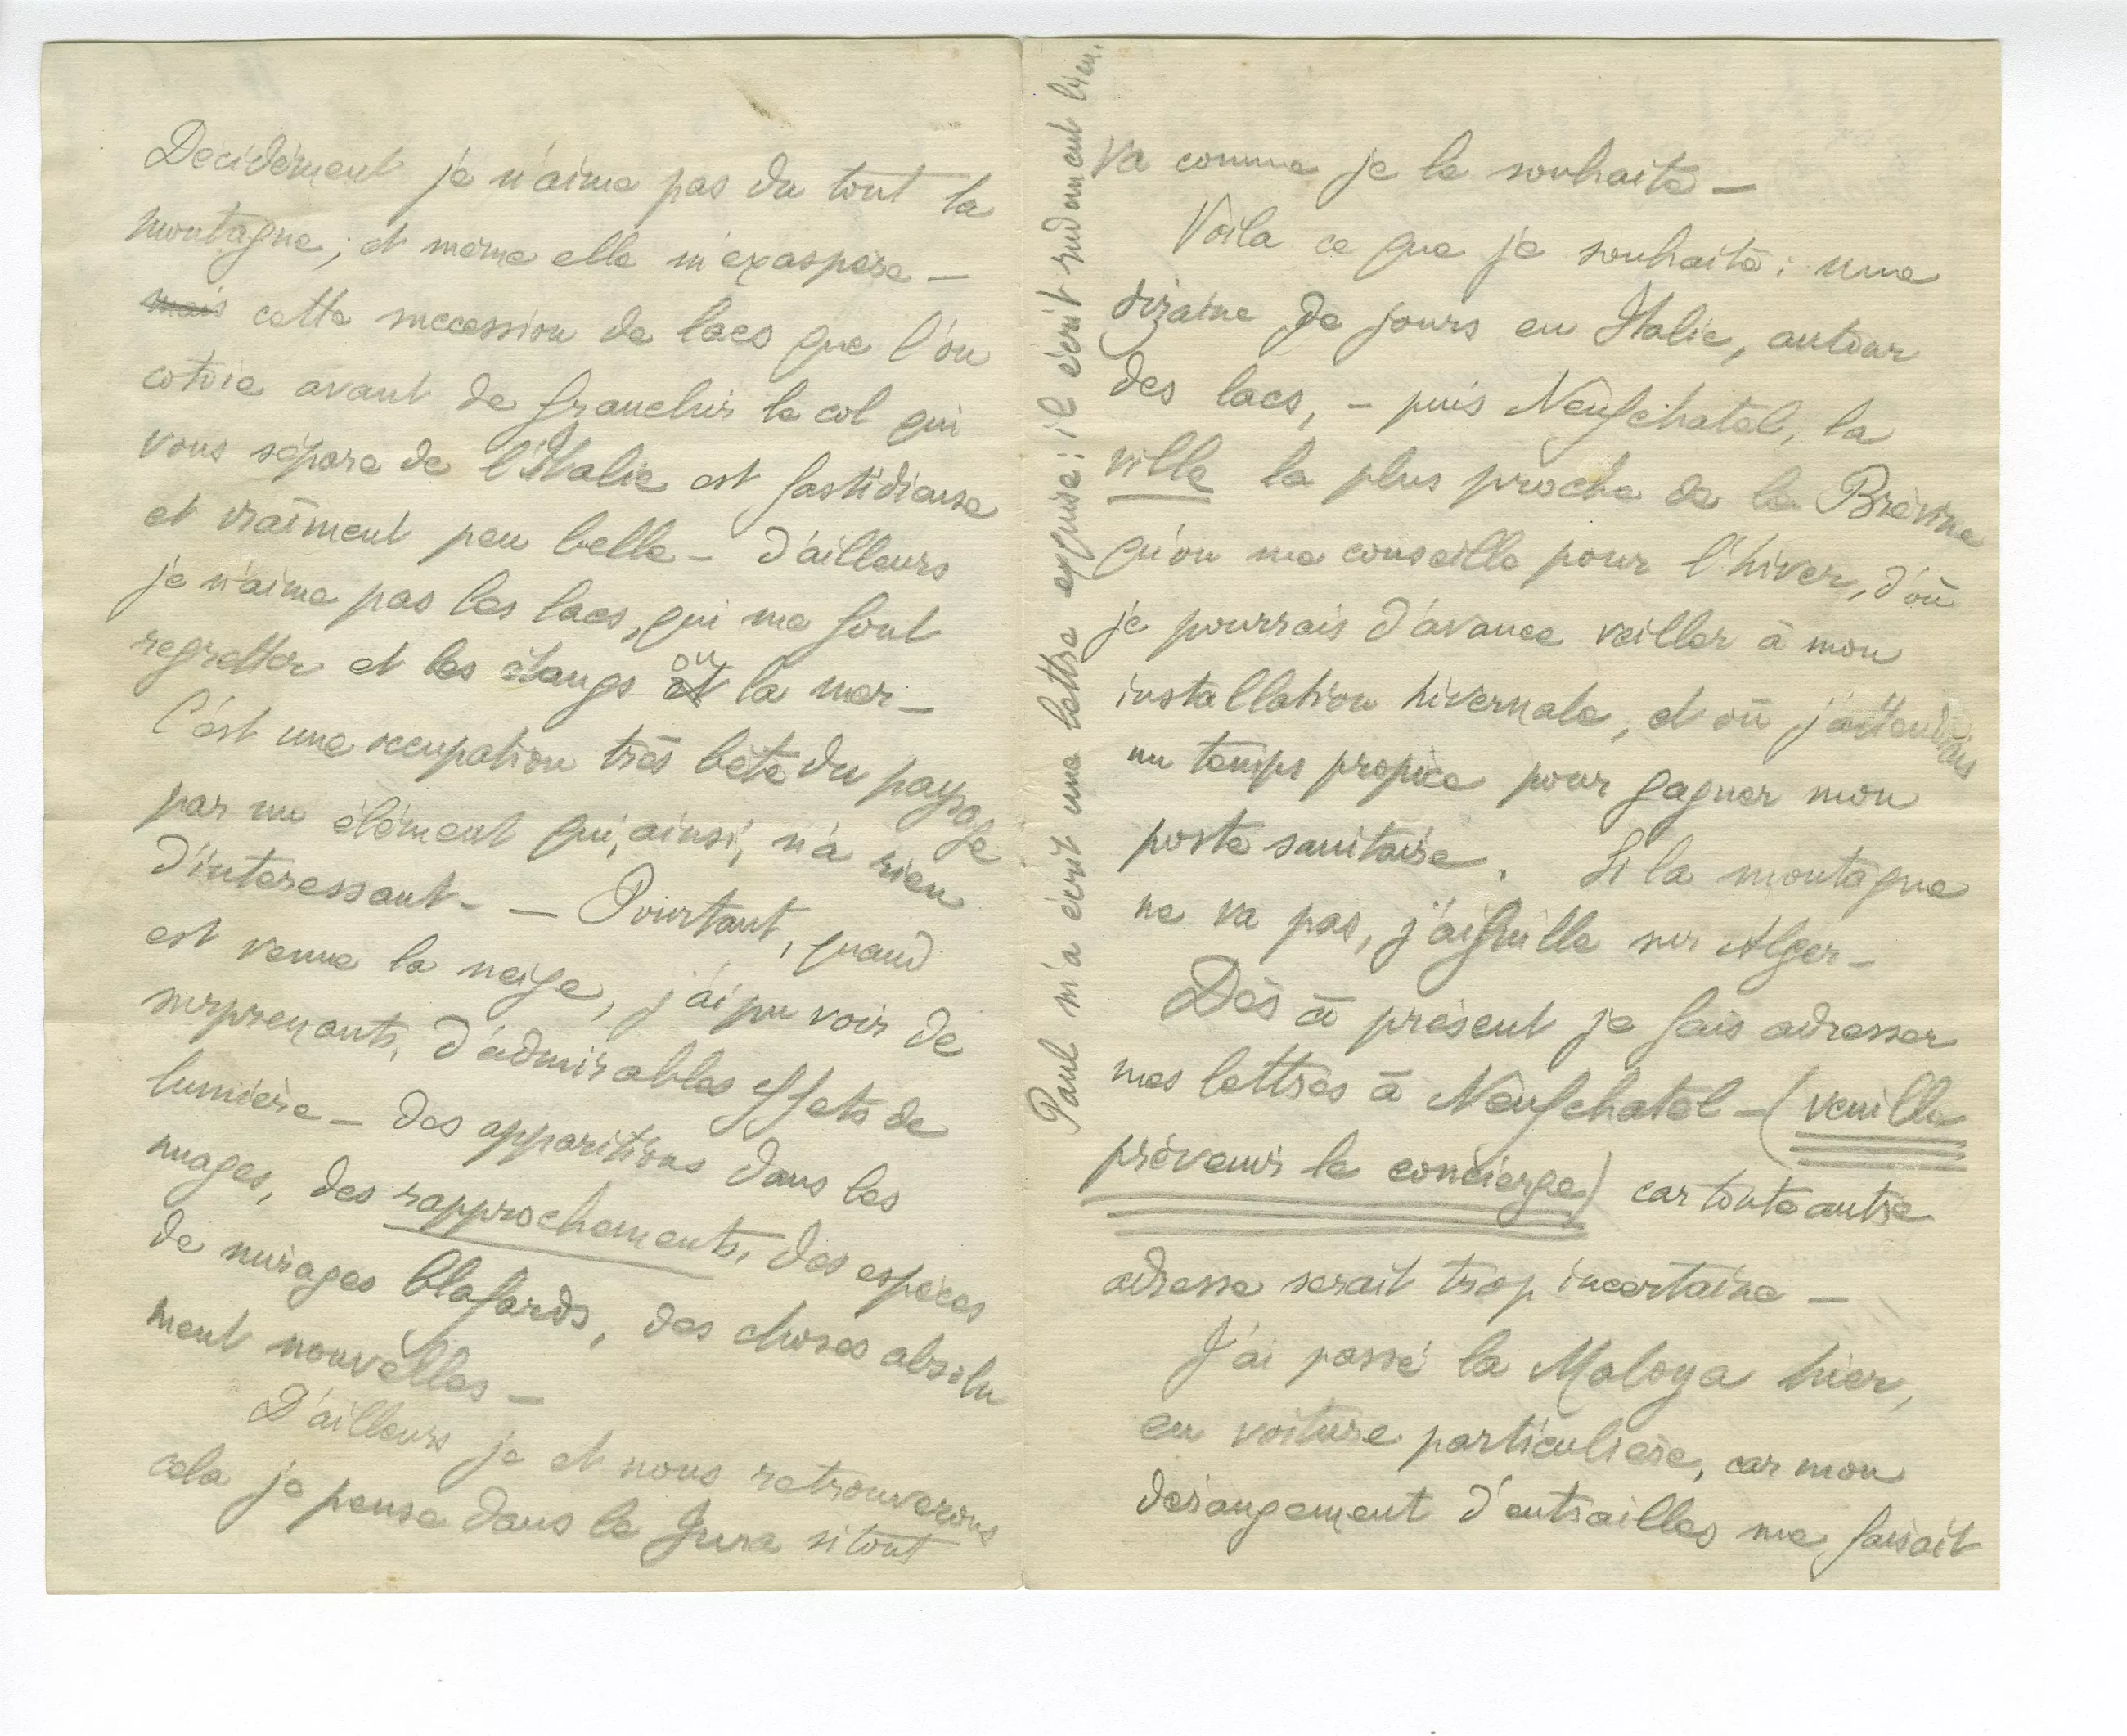 Décidément je n'aime pas du tout la
montagne; et même elle m'exaspère –
mais cette succession de lacs que l'on
cotoie avant de franchir le col qui
vous sépare de l'Italie est fastidieuse
et vraiment peu belle – d'ailleurs
je n'aime pas les lacs, qui me font
regretter et les étangs et ou la mer –
C'est une occupation très bête du paysage
par un élément qui, ainsi, n'a rien
d'intéressant – – Pourtant, quand
est venue la neige, j'ai pu voir de
surprenants, d'admirables effets de
lumière – des apparitions dans les
nuages, des rapprochements, des espèces
de mirages blafards, des choses absolu
ment nouvelles –
D'ailleurs je et nous retrouverons
cela je pense dans le Jura si tout
va comme je le souhaite –
Voila ce que je souhaite : une
dizaine de jours en Italie, autour
des lacs, – puis Neufchatel, la
ville la plus proche de la Brévine
qu'on me conseille pour l'hiver, d'où
je pourrais d'avance veiller à mon
installation hivernale, et où j'attendrais
un temps propice pour gagner mon
poste sanitaire. Si la montagne
ne va pas, j'aiguille sur Alger –
Dès à présent je fais adresser
mes lettres à Neufchatel – (veuille
prévenir le concierge) car toute autre
adresse serait trop incertaine –
J'ai passé la Maloya hier,
en voiture particulière, car mon
dérangement d'entrailles me faisait
Paul m'a écrit une lettre exquise : il écrit rudement bien.